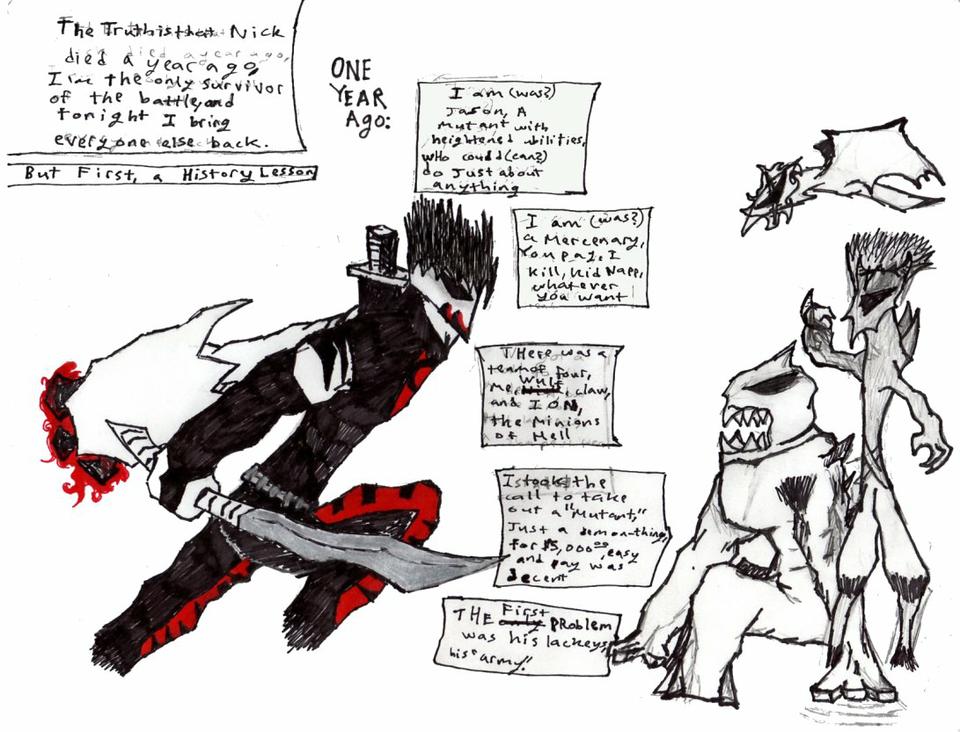 The Truth is that Nick
died a year ago,
I'm the only survivor
of the battle, and
tonight I bring
everyone else back.
But First, a History Lesson
ONE
YEAR
AGO:
I am (was?)
Jason, A
mutant with
heightened abilities,
who could (can?)
do Just about
anything
I am (was?)
a Mercenary,
You pay, I
kill, kid Napp,
whatever
you want!
THere was a
team of four,
Me, Wulf, claw,
and ION,
the Minions
of Hell
I took the
call to take
out a "Mutant,"
Just a demon-thing,
for $5,000.00, easy
and pay was
decent
THE First PROBLEM
was his lackeys,
his "army."